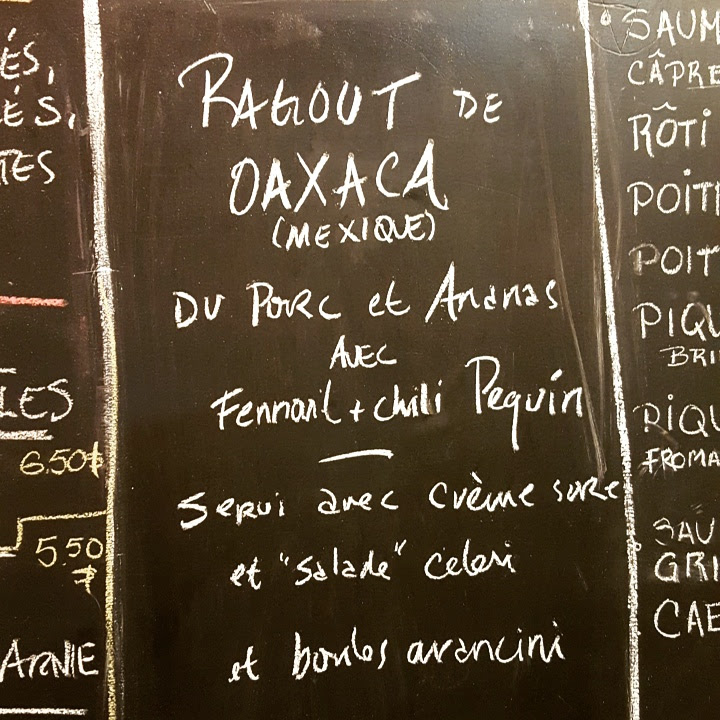 ÉS,
ÉS,
TES
LES
6.50$
5.50
$
ARNIE
RAGOUT DE
OAXACA
(MEXIQUE)
DU PORC et Ananas
AVEC
Fennouil + chili Pequin
Servi avec crème sure
et "salade" celeri
et boules arancini
SAUM
CÂPRE
RÔTI
POIT
POIT
PIQU
BRI
PIQU
FROMA
SAU
GRI
CAE